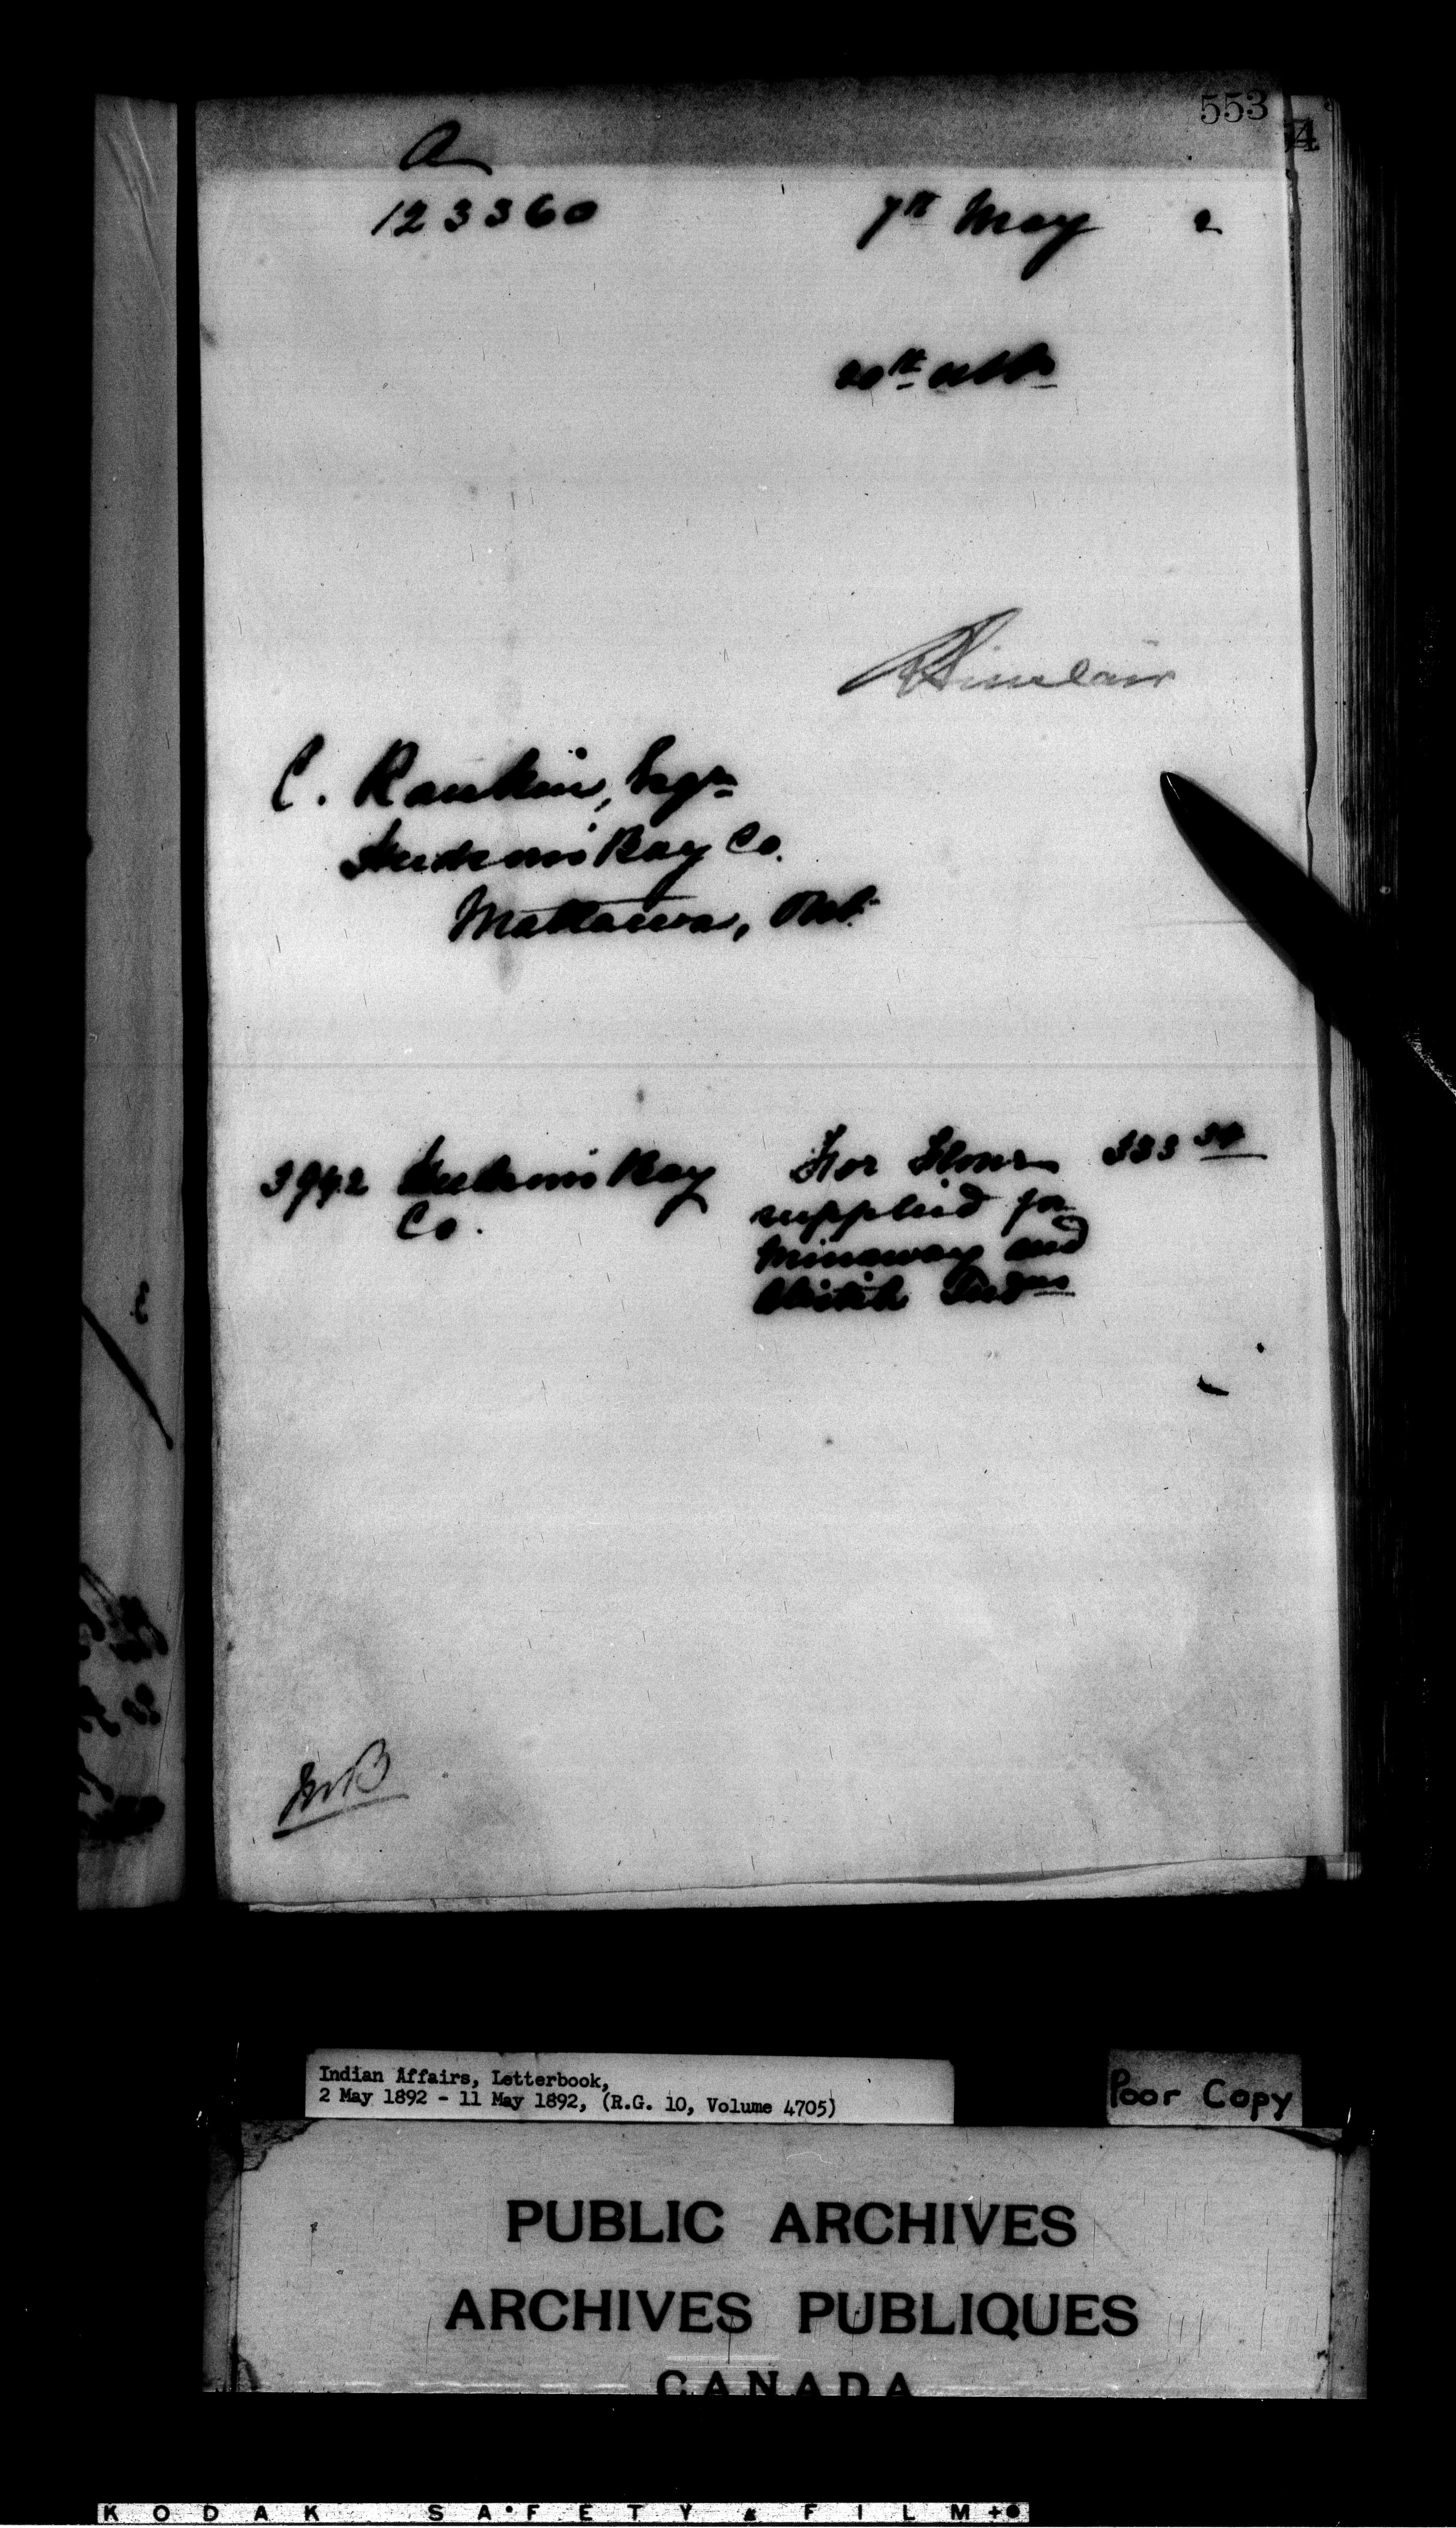 553
A
123360 7th May 2
20th ulto
R Sinclair
C. Rankin, Esqr
Hudson's Bay Co.
Mattawa, Ont.
3942 Hudson's Bay Co. For flour 333 34
supplied for
and
Abitibi Indns
Indian Affairs, Letterbook,
2 May 1892 - 11 May 1892, (R.G. 10, Volume 4705)
Poor Copy
PUBLIC ARCHIVES
ARCHIVES PUBLIQUES
CANADA
KODAK SAFETY FILM